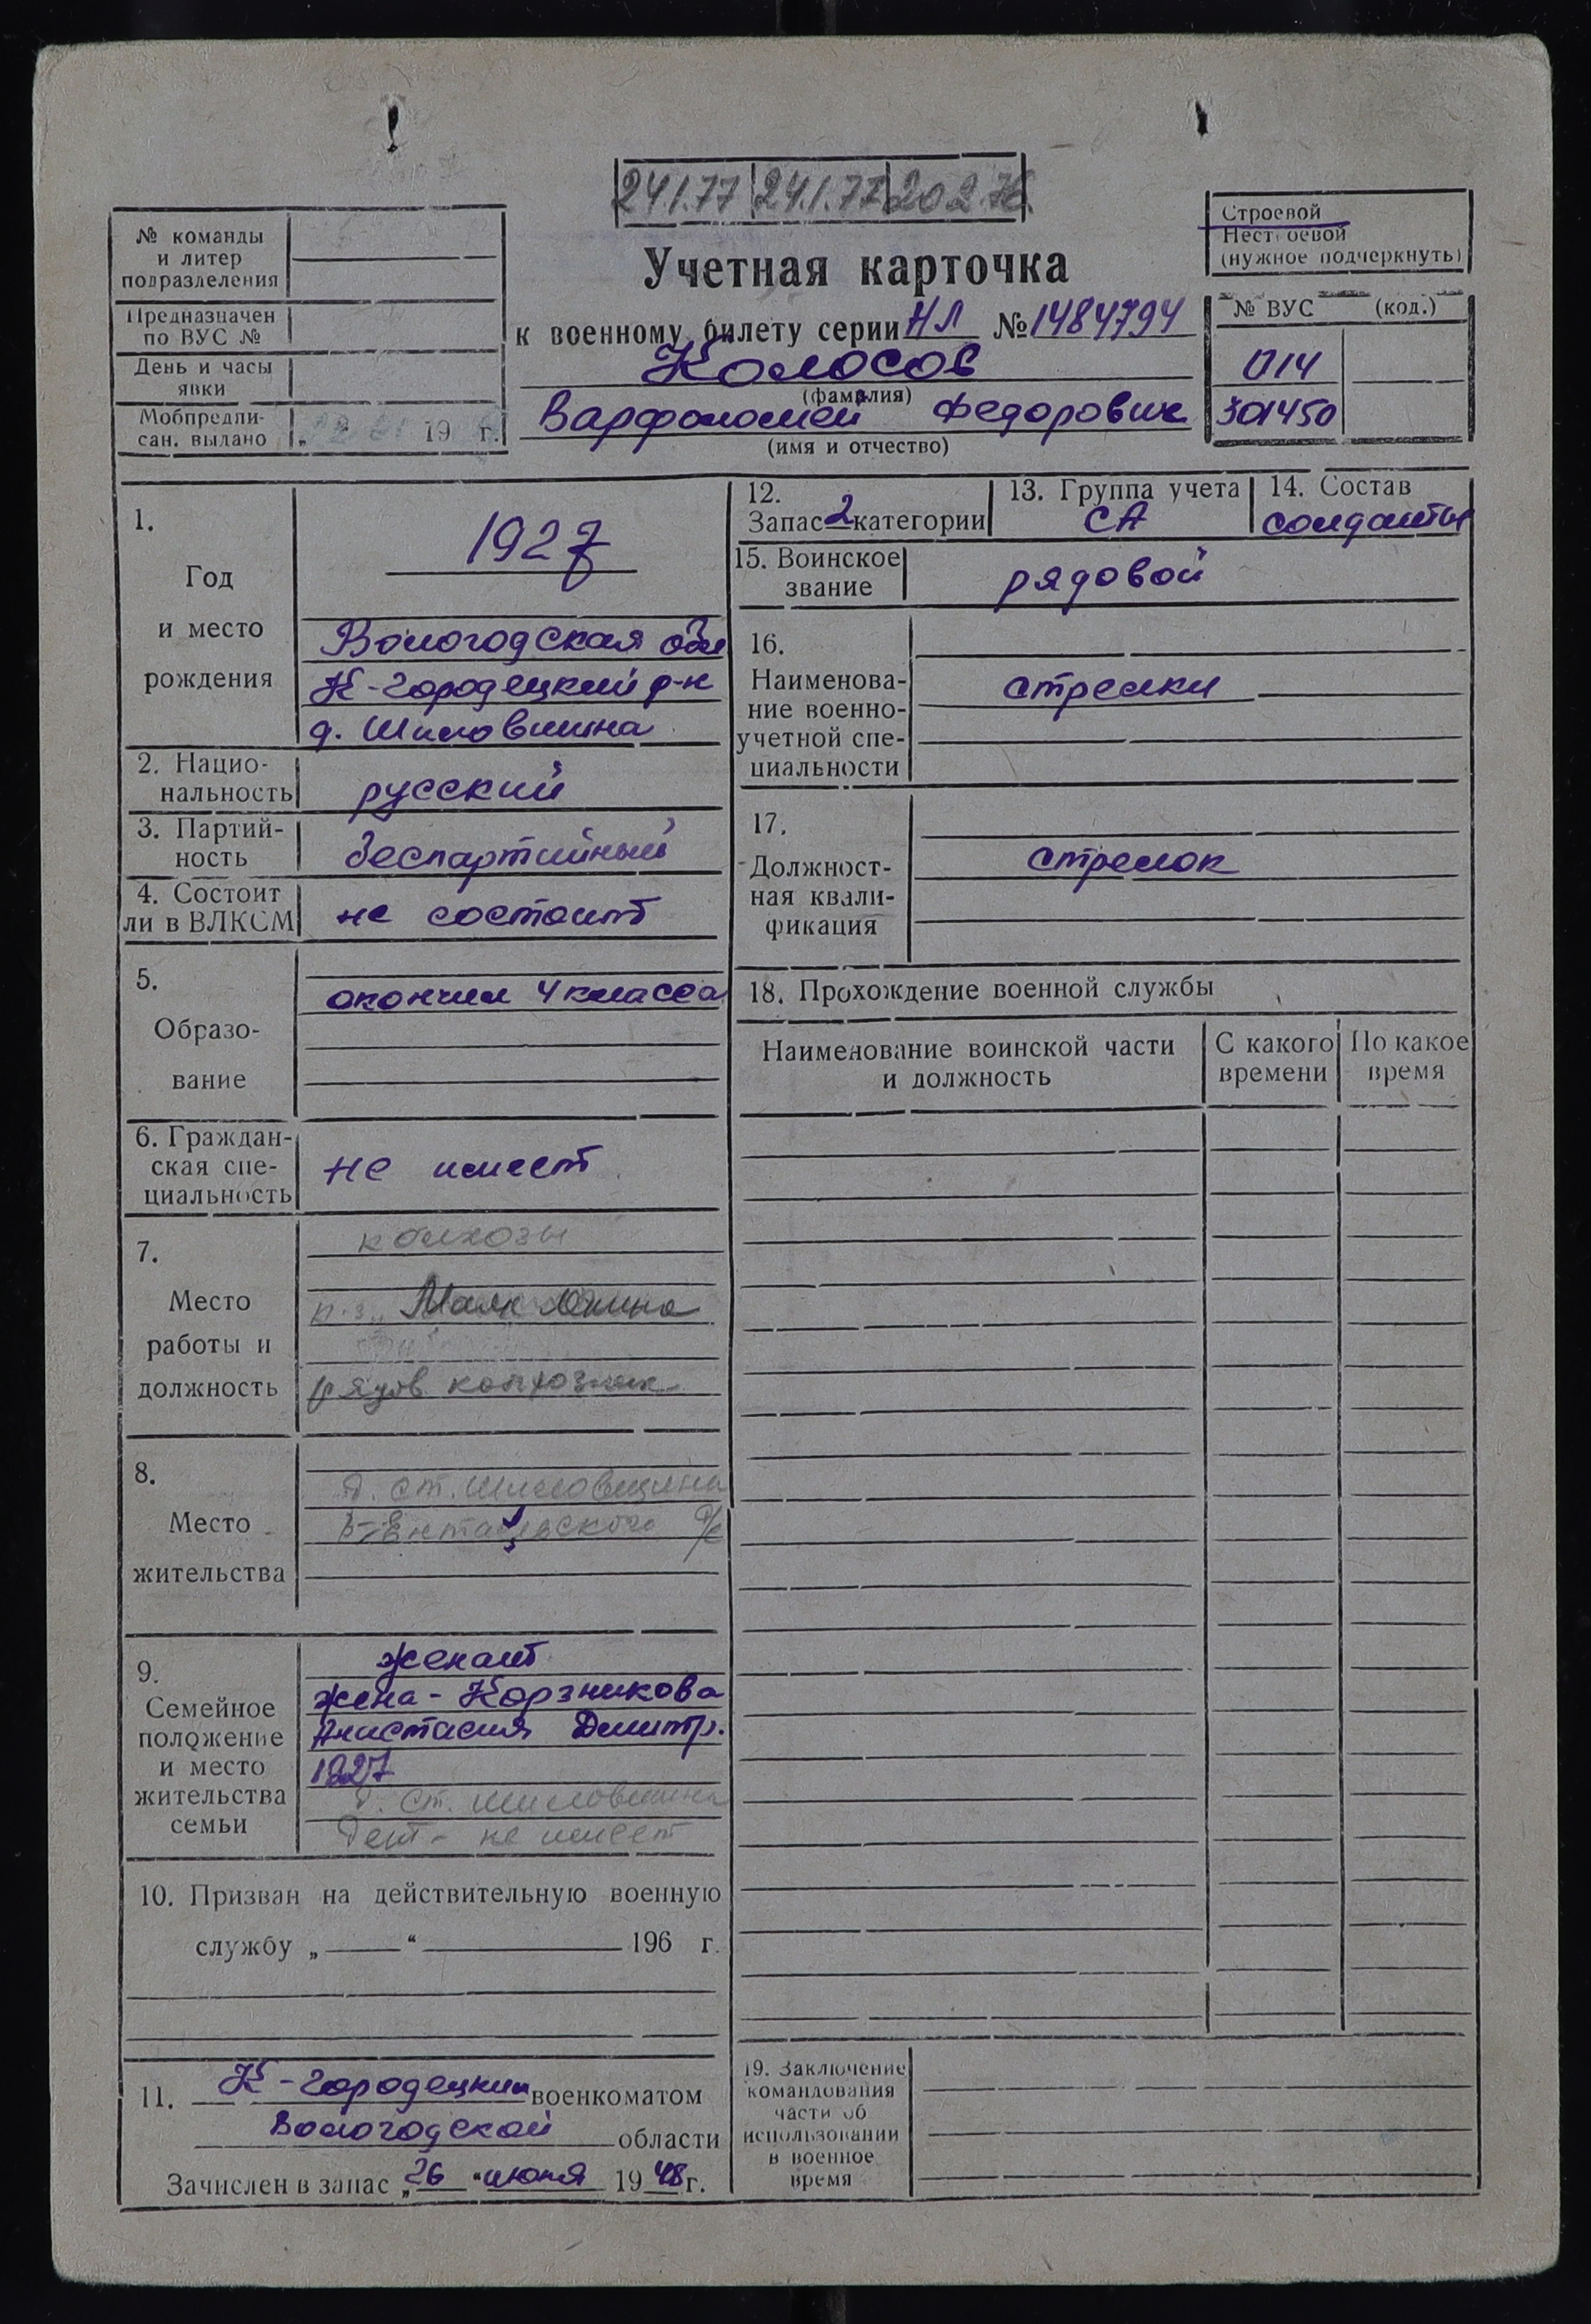 24.1.77 24.1.77 20.2.76
№ команды
и литер
подразделения
Предназначен
по ВУС №
День и часы
явки
Мобпредпи-
сан. выдано „ “ 19 г.
Учетная карточка
к военному билету серии НЛ № 1484794
Колосов
(фамилия)
Варфоломей Федорович
(имя и отчество)
Строевой
Нестроевой
(нужное подчеркнуть)
№ ВУС (код.)
014
301450
1.
Год
и место
рождения
1927
Вологодская обл
К-Городецкий р-н
д. Шиловщина
2. Нацио-
нальность русский
3. Партий-
ность беспартийный
4. Состоит
ли в ВЛКСМ не состоит
5.
Образо-
вание
окончил 4 класса
6. Граждан-
ская спе-
циальность
не имеет
7.
Место
работы и
должность
колхозы
Маяк
рядов колхозник
8.
Место
жительства
д. ст. Шиловщина
с/с
9.
Семейное
положение
и место
жительства
семьи
женат
жена - Корзникова
Анастасия Дмитр.
1927
д. ст. Шиловщина
Дет - не имеет
10. Призван на действительную военную
службу „ “ 196 г.
11. К-Городецким военкоматом
Вологодской области
Зачислен в запас „26 “ июня 1948 г.
12.
Запас 2 категории
13. Группа учета
СА
14. Состав
солдаты
15. Воинское
звание
рядовой
16.
Наименова-
ние военно-
учетной спе-
циальности
стрелки
17.
Должност-
ная квали-
фикация
стрелок
18. Прохождение военной службы
Наименование воинской части
и должность
С какого
времени
По какое
время
19. Заключение
командования
части об
использовании
в военное
время